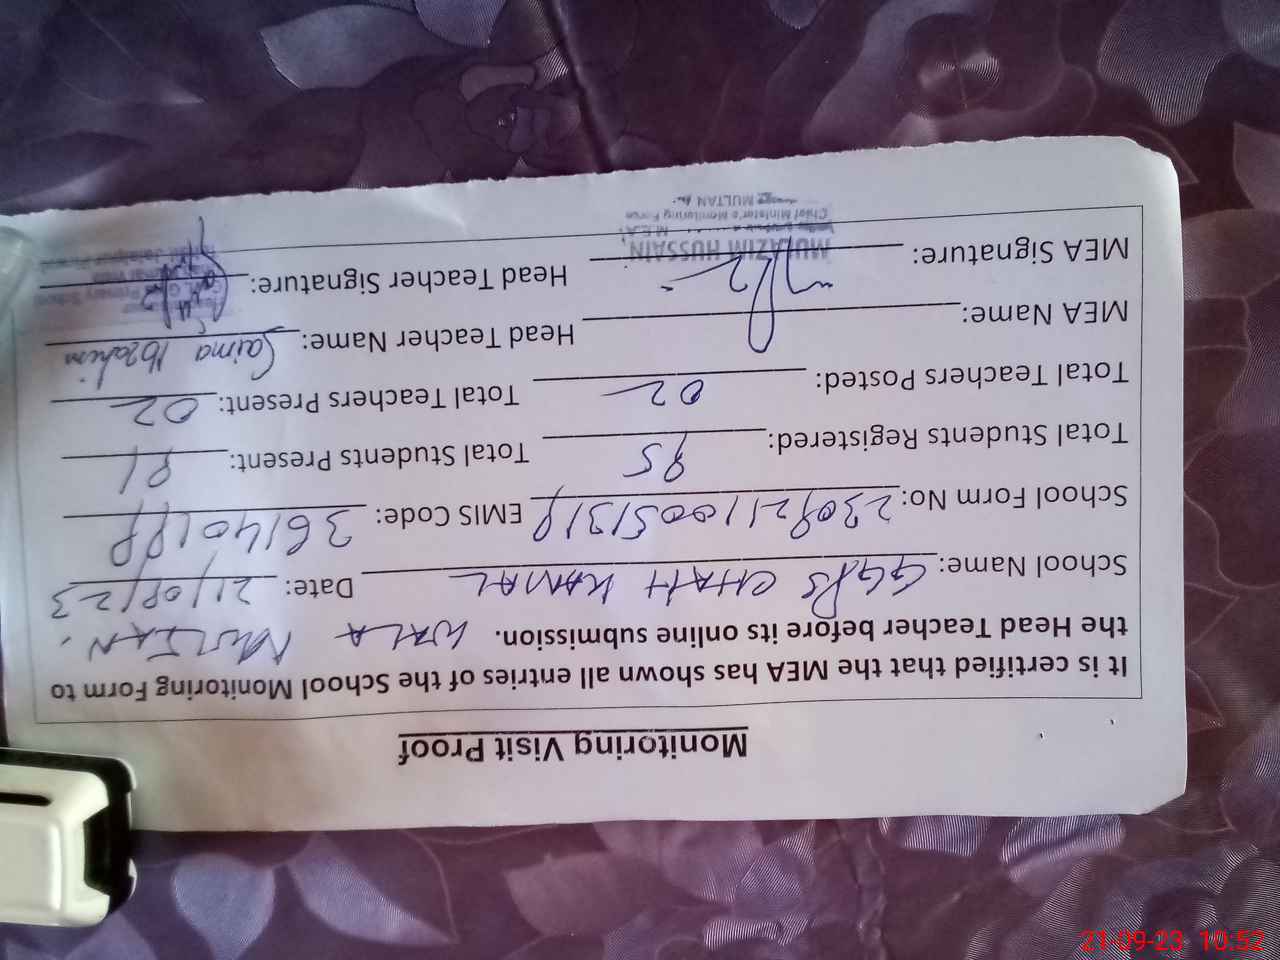 Monitoring Visit Proof
It is certified that the MEA has shown all entries of the School Monitoring Form to
the Head Teacher before its online submission. WALA MULTAN.
School Name: GGPS CHAH KAMAL Date: 21/09/23
School Form No: 23092110051319 EMIS Code: 36140199
Total Students Registered: 95 Total Students Present: 91
Total Teachers Posted: 02 Total Teachers Present: 02
MEA Name: Head Teacher Name: Saima Ibrahim
MEA Signature: Head Teacher Signature:
MULAZIM HUSSAIN
M.E.A.
Chief Minister's Monitoring Force
MULTAN
Primary School
21-09-23 10:52